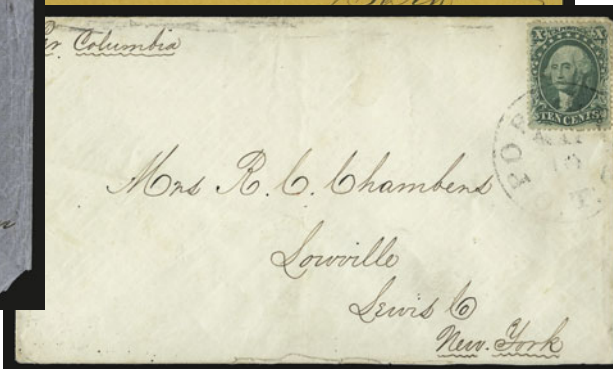 Columbia
X X
TEN CENTS
POR
10
T.
Mrs R. C. Chambers
Lowville
Lewis Co
New. York